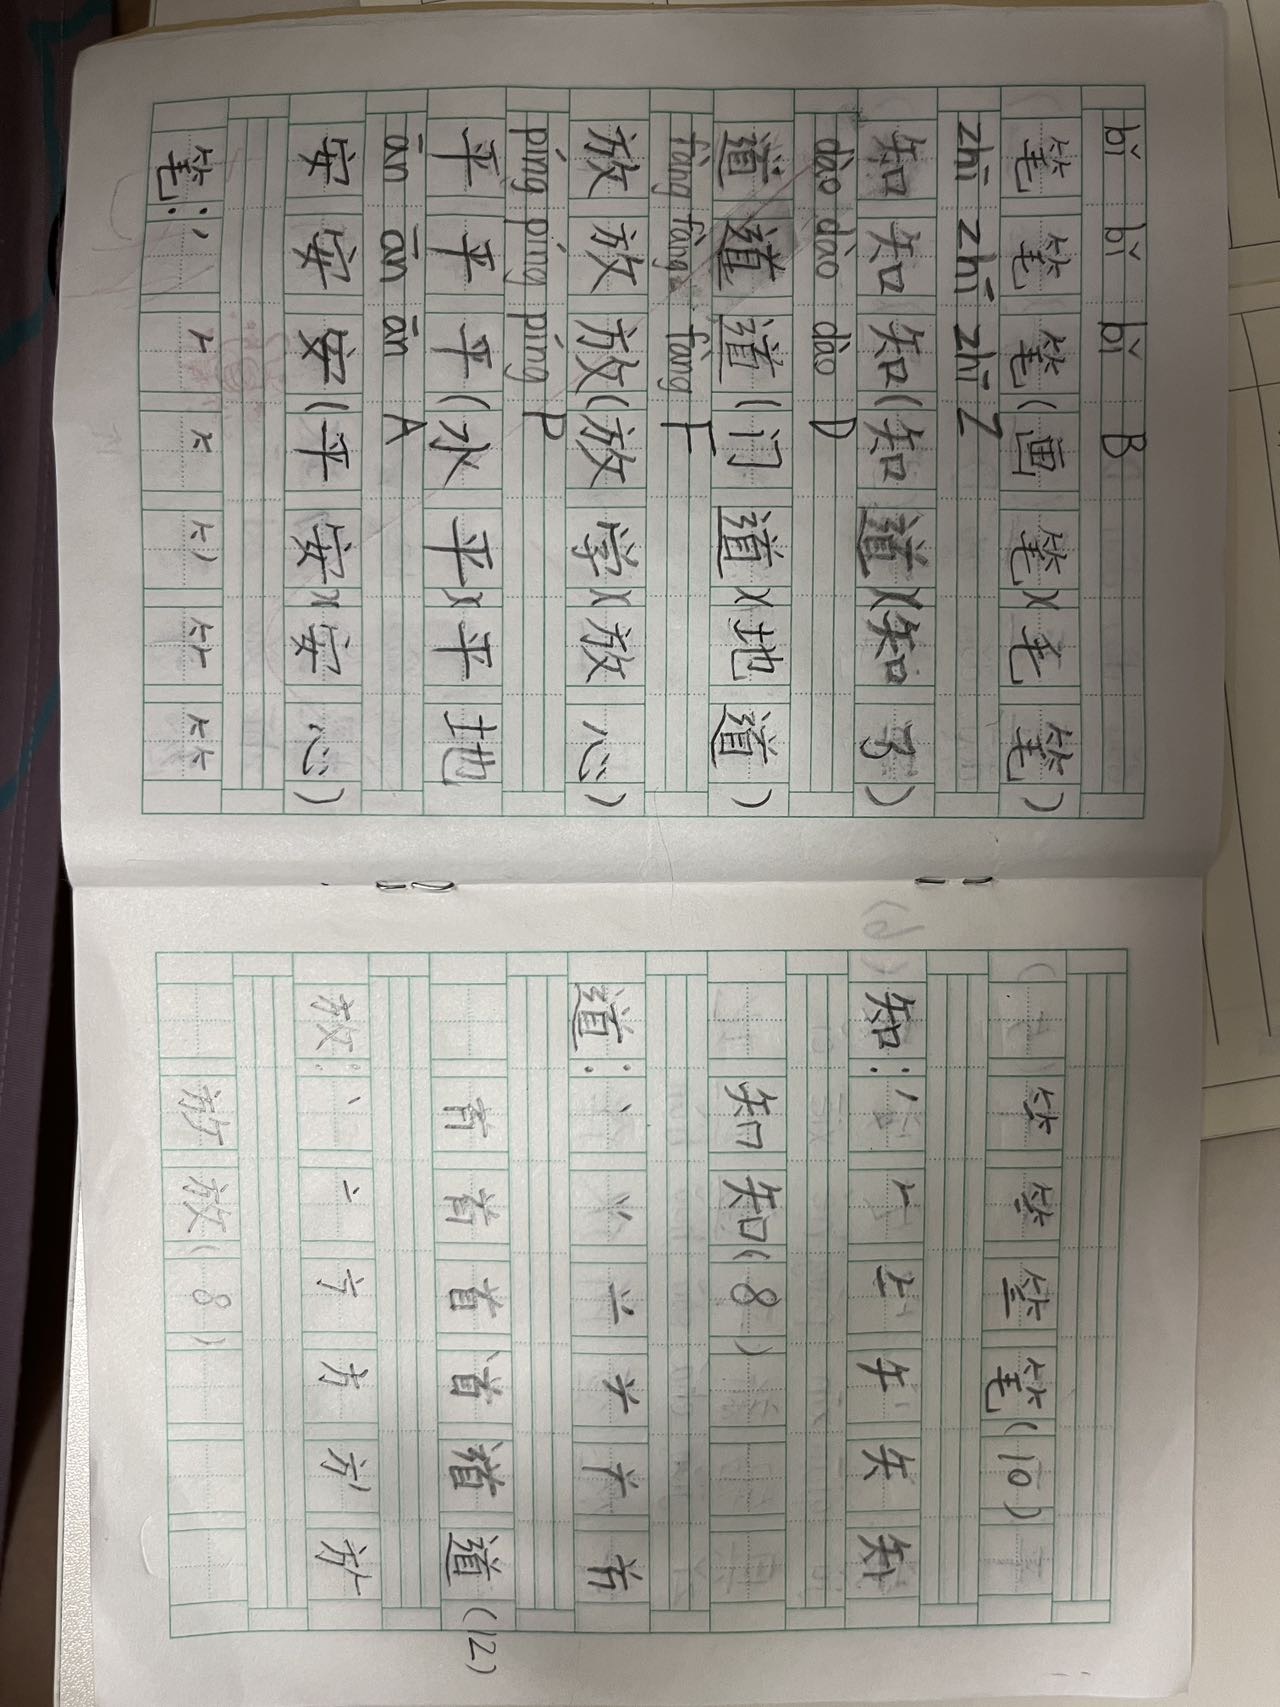 bǐ bǐ bǐ B
笔 笔 笔(画 笔)(毛 笔)
zhī zhī zhī Z
知 知 知(知 道)(知 了)
dào dào dào D
道 道 道(门 道)(地 道)
fàng fàng fàng F
放 放 放(放 学)(放 心)
píng píng píng P
平 平 平(水 平)(平 地)
ān ān ān A
安 安 安(平 安)(安 心)
笔:
笔(10)
知:
知 知(8)
道:
首 道(12)
放:
方
放 放(8)